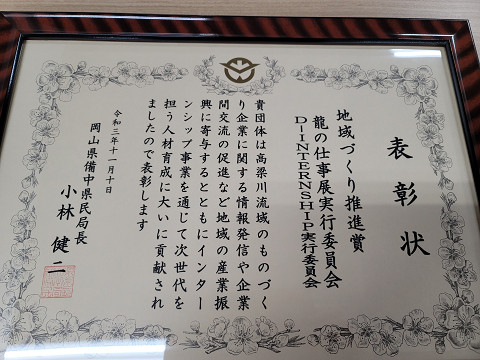 表彰状
地域づくり推進賞
龍の仕事展実行委員会
D-INTERNSHIP実行委員会
貴団体は高梁川流域のものづく
り企業に関する情報発信や企業
間交流の促進など地域の産業振
興に寄与するとともにインター
ンシップ事業を通じて次世代を
担う人材育成に大いに貢献され
ましたので表彰します
令和三年十一月十日
岡山県備中県民局長
小林健二